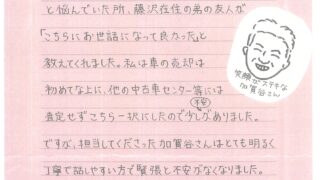 と悩んでいた所、藤沢在住の弟の友人が
「こちらにお世話になって良かった」と
教えてくれました。私は車の売却は
初めてな上に、他の中古車センター等には
査定せずこちら一択にしたので少し不安がありました。
ですが、担当してくださった加賀谷さんはとても明るく
丁寧で話しやすい方で緊張と不安がなくなりました。
笑顔がステキな
加賀谷さん